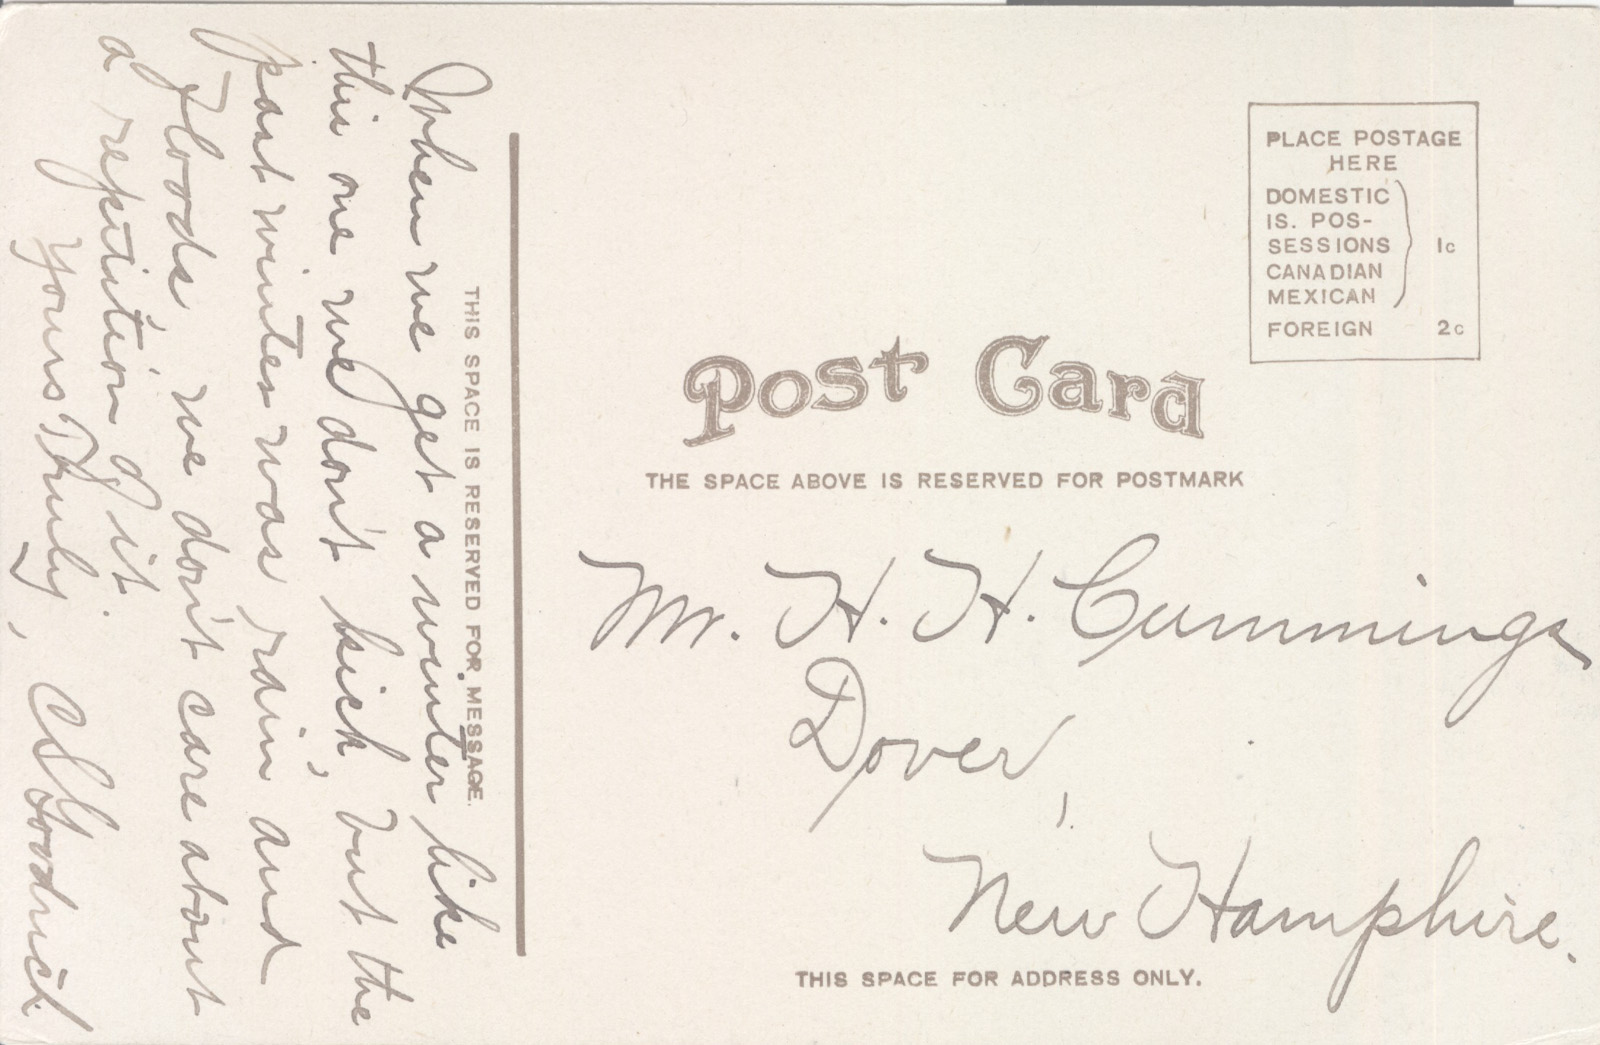 When we get a winter like
this one we don't kick, but the
past winter was rain and
floods, we don't care about
a repitition of it.
Yours Truly,
Goodrich
THIS SPACE IS RESERVED FOR MESSAGE.
PLACE POSTAGE
HERE
DOMESTIC
IS. POS-
SESSIONS 1c
CANADIAN
MEXICAN
FOREIGN 2c
Post Card
THE SPACE ABOVE IS RESERVED FOR POSTMARK
Mr. H. H. Cummings
Dover,
New Hampshire.
THIS SPACE FOR ADDRESS ONLY.